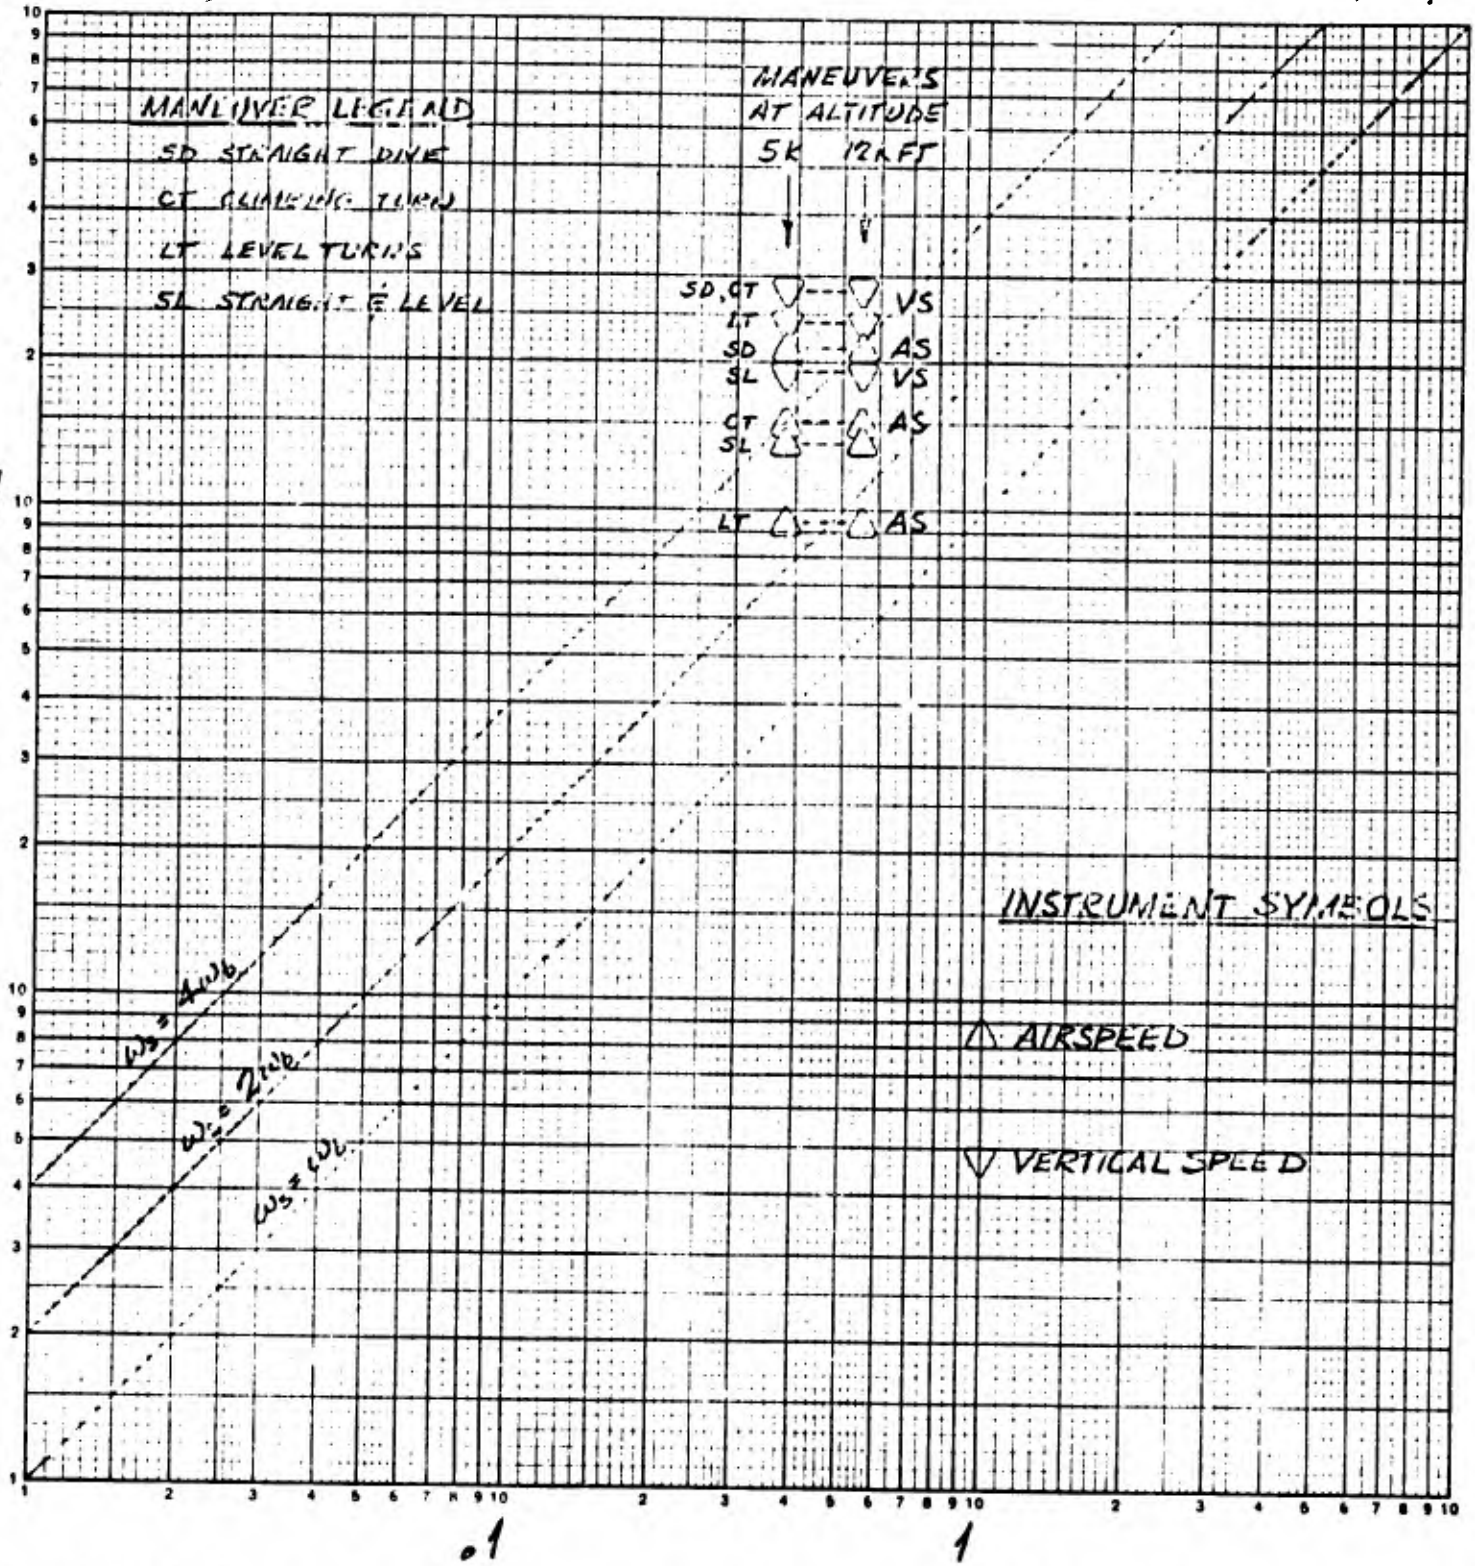 MANEUVER LEGEND
SD STRAIGHT DIVE
CT CLIMBING TURN
LT LEVEL TURNS
SL STRAIGHT & LEVEL
MANEUVERS
AT ALTITUDE
5K 12K FT
SD, CT VS
LT
SD AS
SL VS
CT AS
SL
LT AS
INSTRUMENT SYMBOLS
△ AIRSPEED
▽ VERTICAL SPEED
ωs = 4ωb
ωs = 2ωb
ωs = ωb
10
9
8
7
6
5
4
3
2
10
9
8
7
6
5
4
3
2
10
9
8
7
6
5
4
3
2
1
1 2 3 4 5 6 7 8 9 10 2 3 4 5 6 7 8 9 10 2 3 4 5 6 7 8 9 10
.1 1